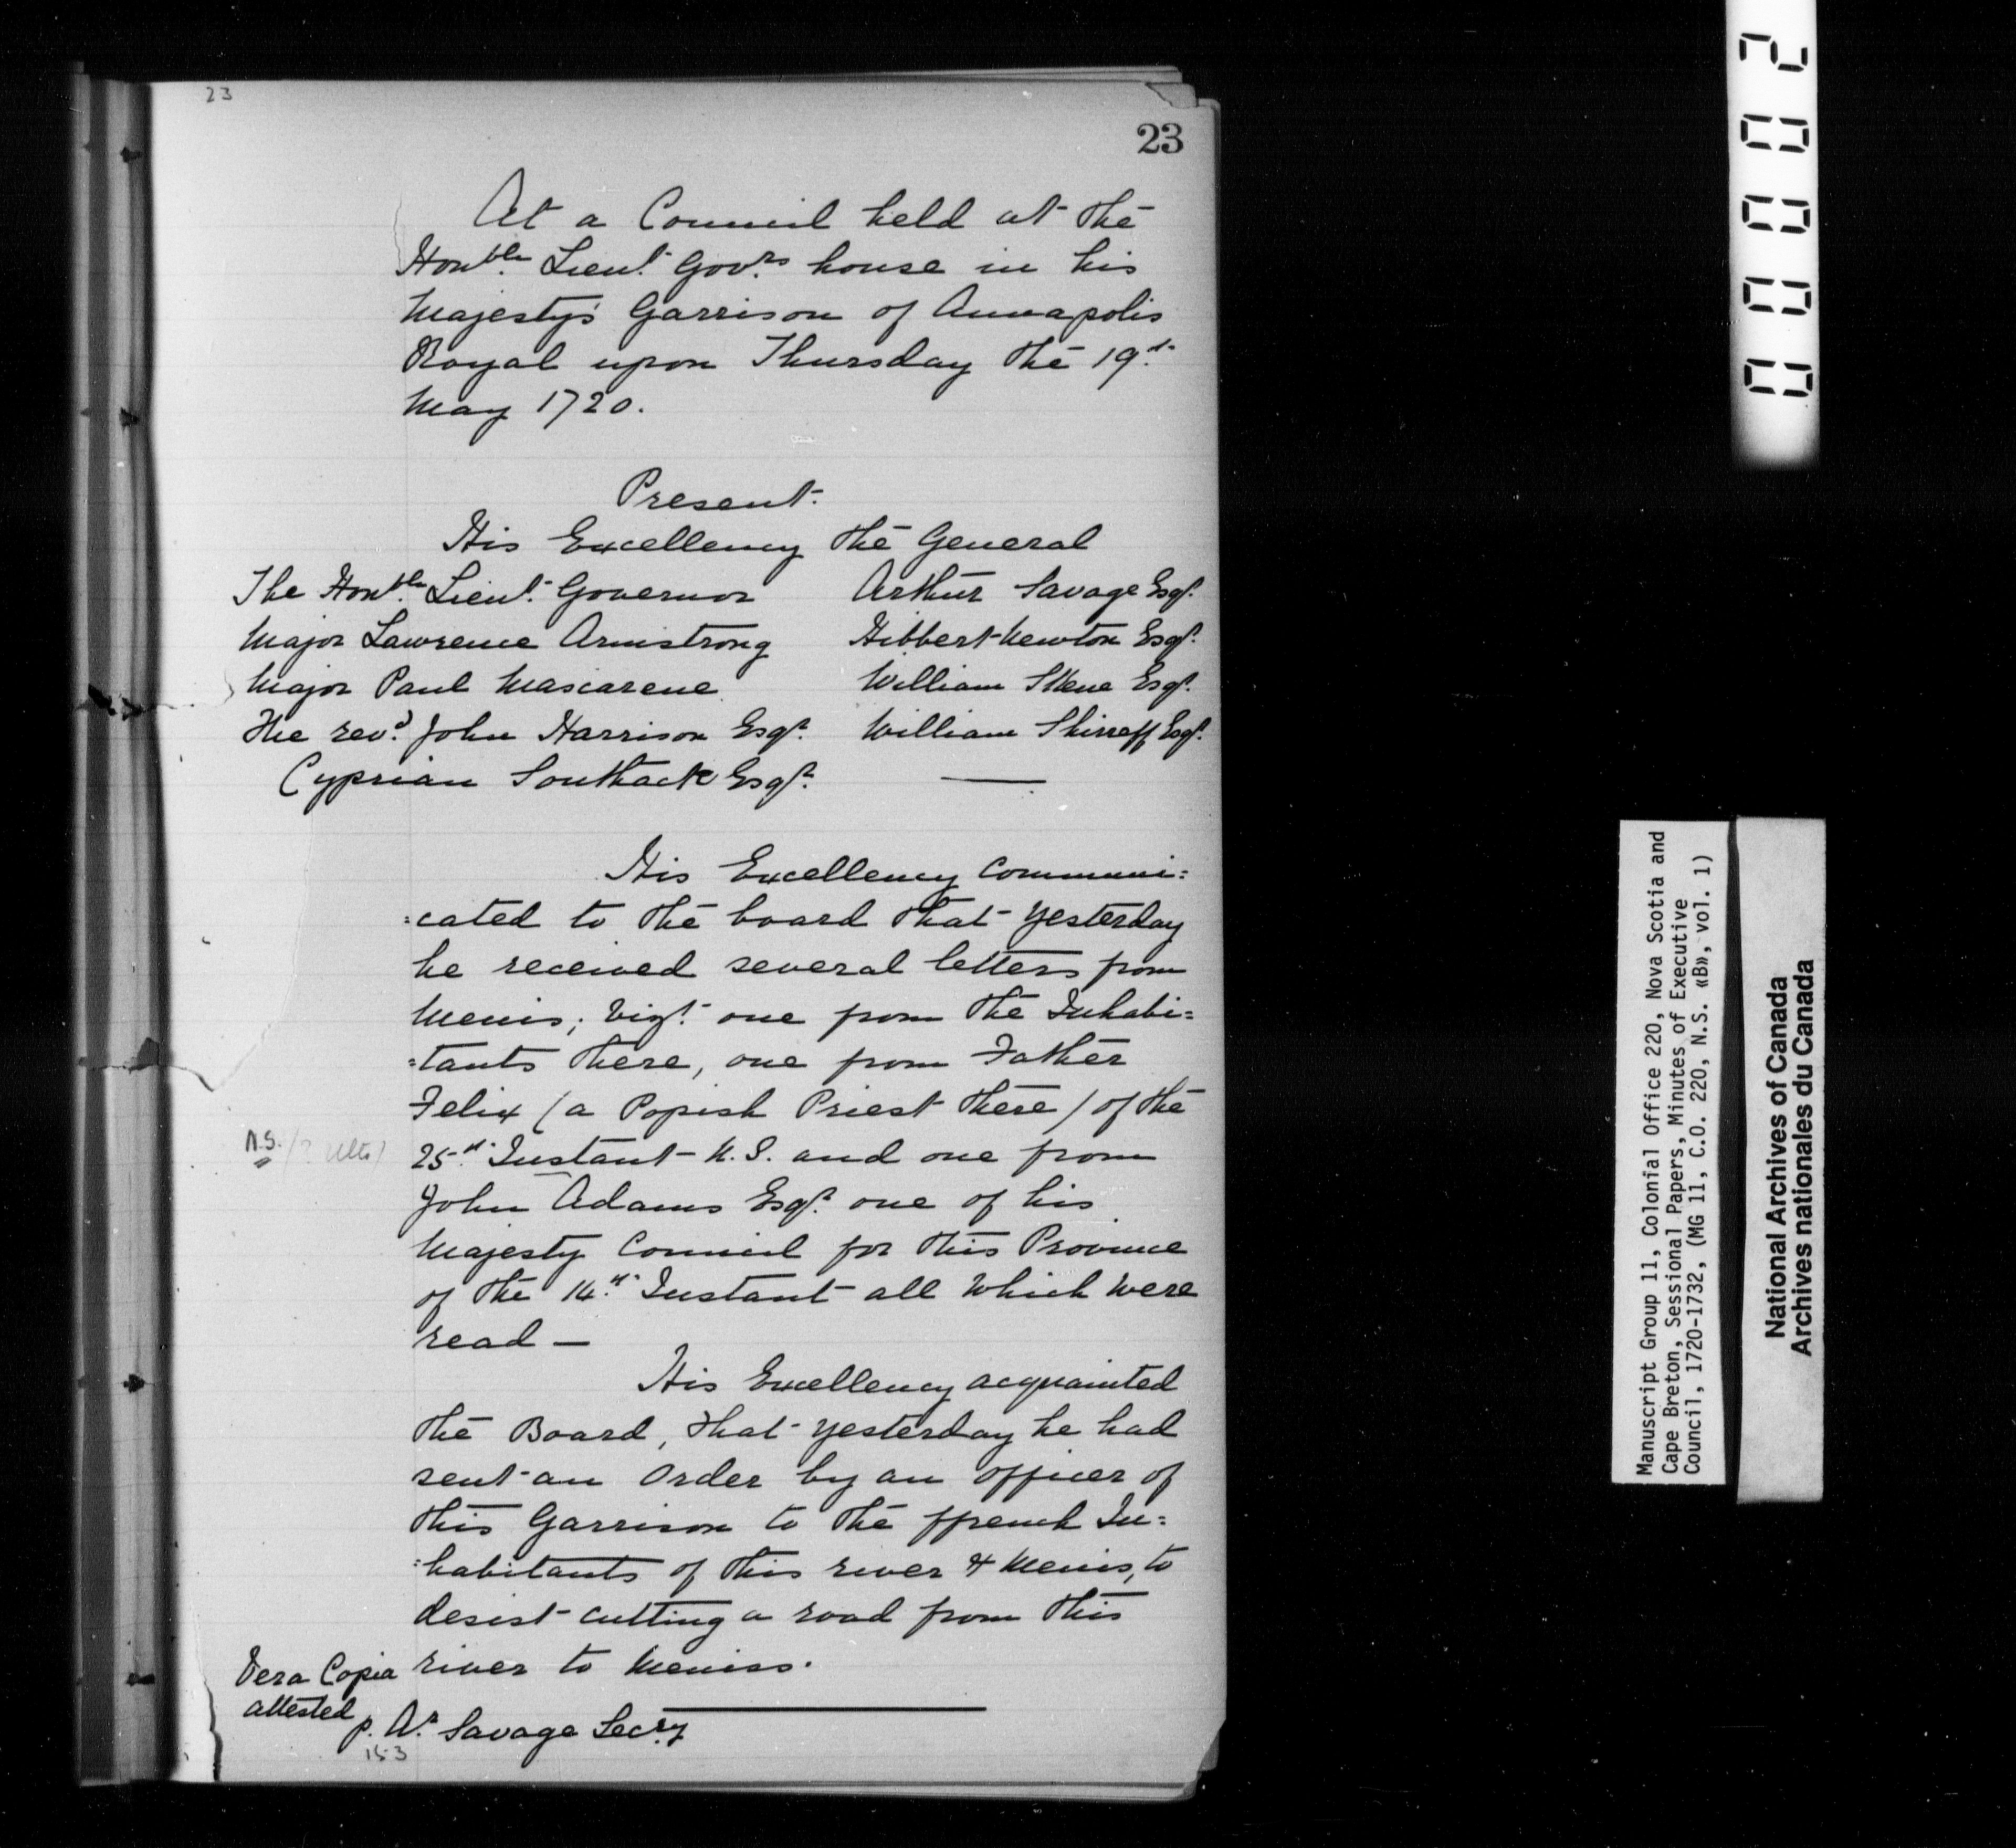 23
23
At a Council held at the
Honble Lieut Govrs house in his
Majesty's Garrison of Annapolis
Royal upon Thursday the 19th
May 1720.
Present.
His Excellency the General
The Honble Lieut Governor
Arthur Savage Esqr.
Major Lawrence Armstrong
Hibbert Newton Esqr.
Major Paul Mascarene
William Skene Esqr.
The revd John Harrison Esqr.
William Shirreff Esqr.
Cyprian Southack Esqr.
His Excellency communi=
=cated to the board that yesterday
he received several letters from
Menis; Vizt. one from the Inhabi=
=tants there, one from Father
Felix (a Popish Priest there) of the
N.S. (? Ulto)
25th Instant N.S. and one from
John Adams Esqr. one of his
Majesty Council for this Province
of the 14th Instant all which were
read —
His Excellency acquainted
the Board, that yesterday he had
sent an Order by an officer of
this Garrison to the ffrench In=
=habitants of this river & Menis, to
desist cutting a road from this
river to Meniss.
Vera Copia
attested
p. Ar. Savage Secry
153
00002
Manuscript Group 11, Colonial Office 220, Nova Scotia and
Cape Breton, Sessional Papers, Minutes of Executive
Council, 1720-1732, (MG 11, C.O. 220, N.S. «B», vol. 1)
National Archives of Canada
Archives nationales du Canada